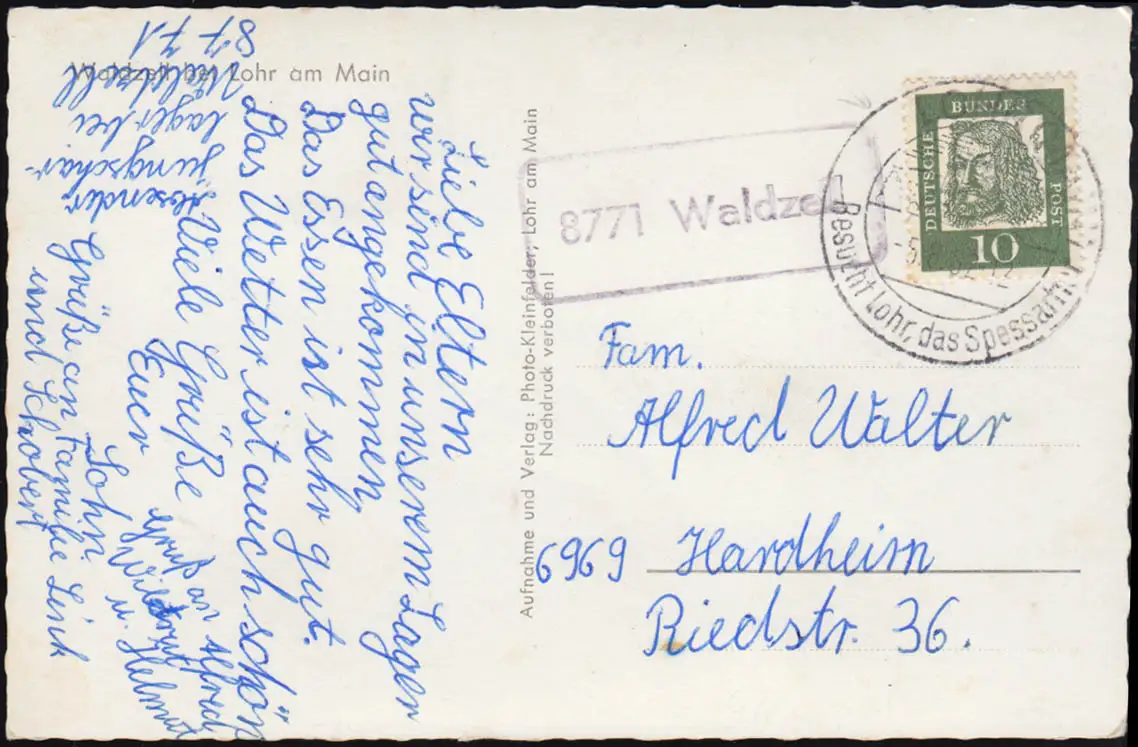 Waldzell bei Lohr am Main
Absender:
Jungschar-
lager bei
Waldzell
8771
Liebe Eltern
wir sind in unserem Lager
gut angekommen.
Das Essen ist sehr gut.
Das Wetter ist auch schön
Viele Grüße
Euer
Sohn
Gruß an Alfred
Wiltrut
u. Helmut
Grüße an Familie Link
und Schobert
Aufnahme und Verlag: Photo-Kleinfelder, Lohr am Main
Nachdruck verboten!
8771 Waldzell
Besucht Lohr, das Spessart
DEUTSCHE
BUNDES
POST
10
Fam.
Alfred Walter
6969 Hardheim
Riedstr. 36.